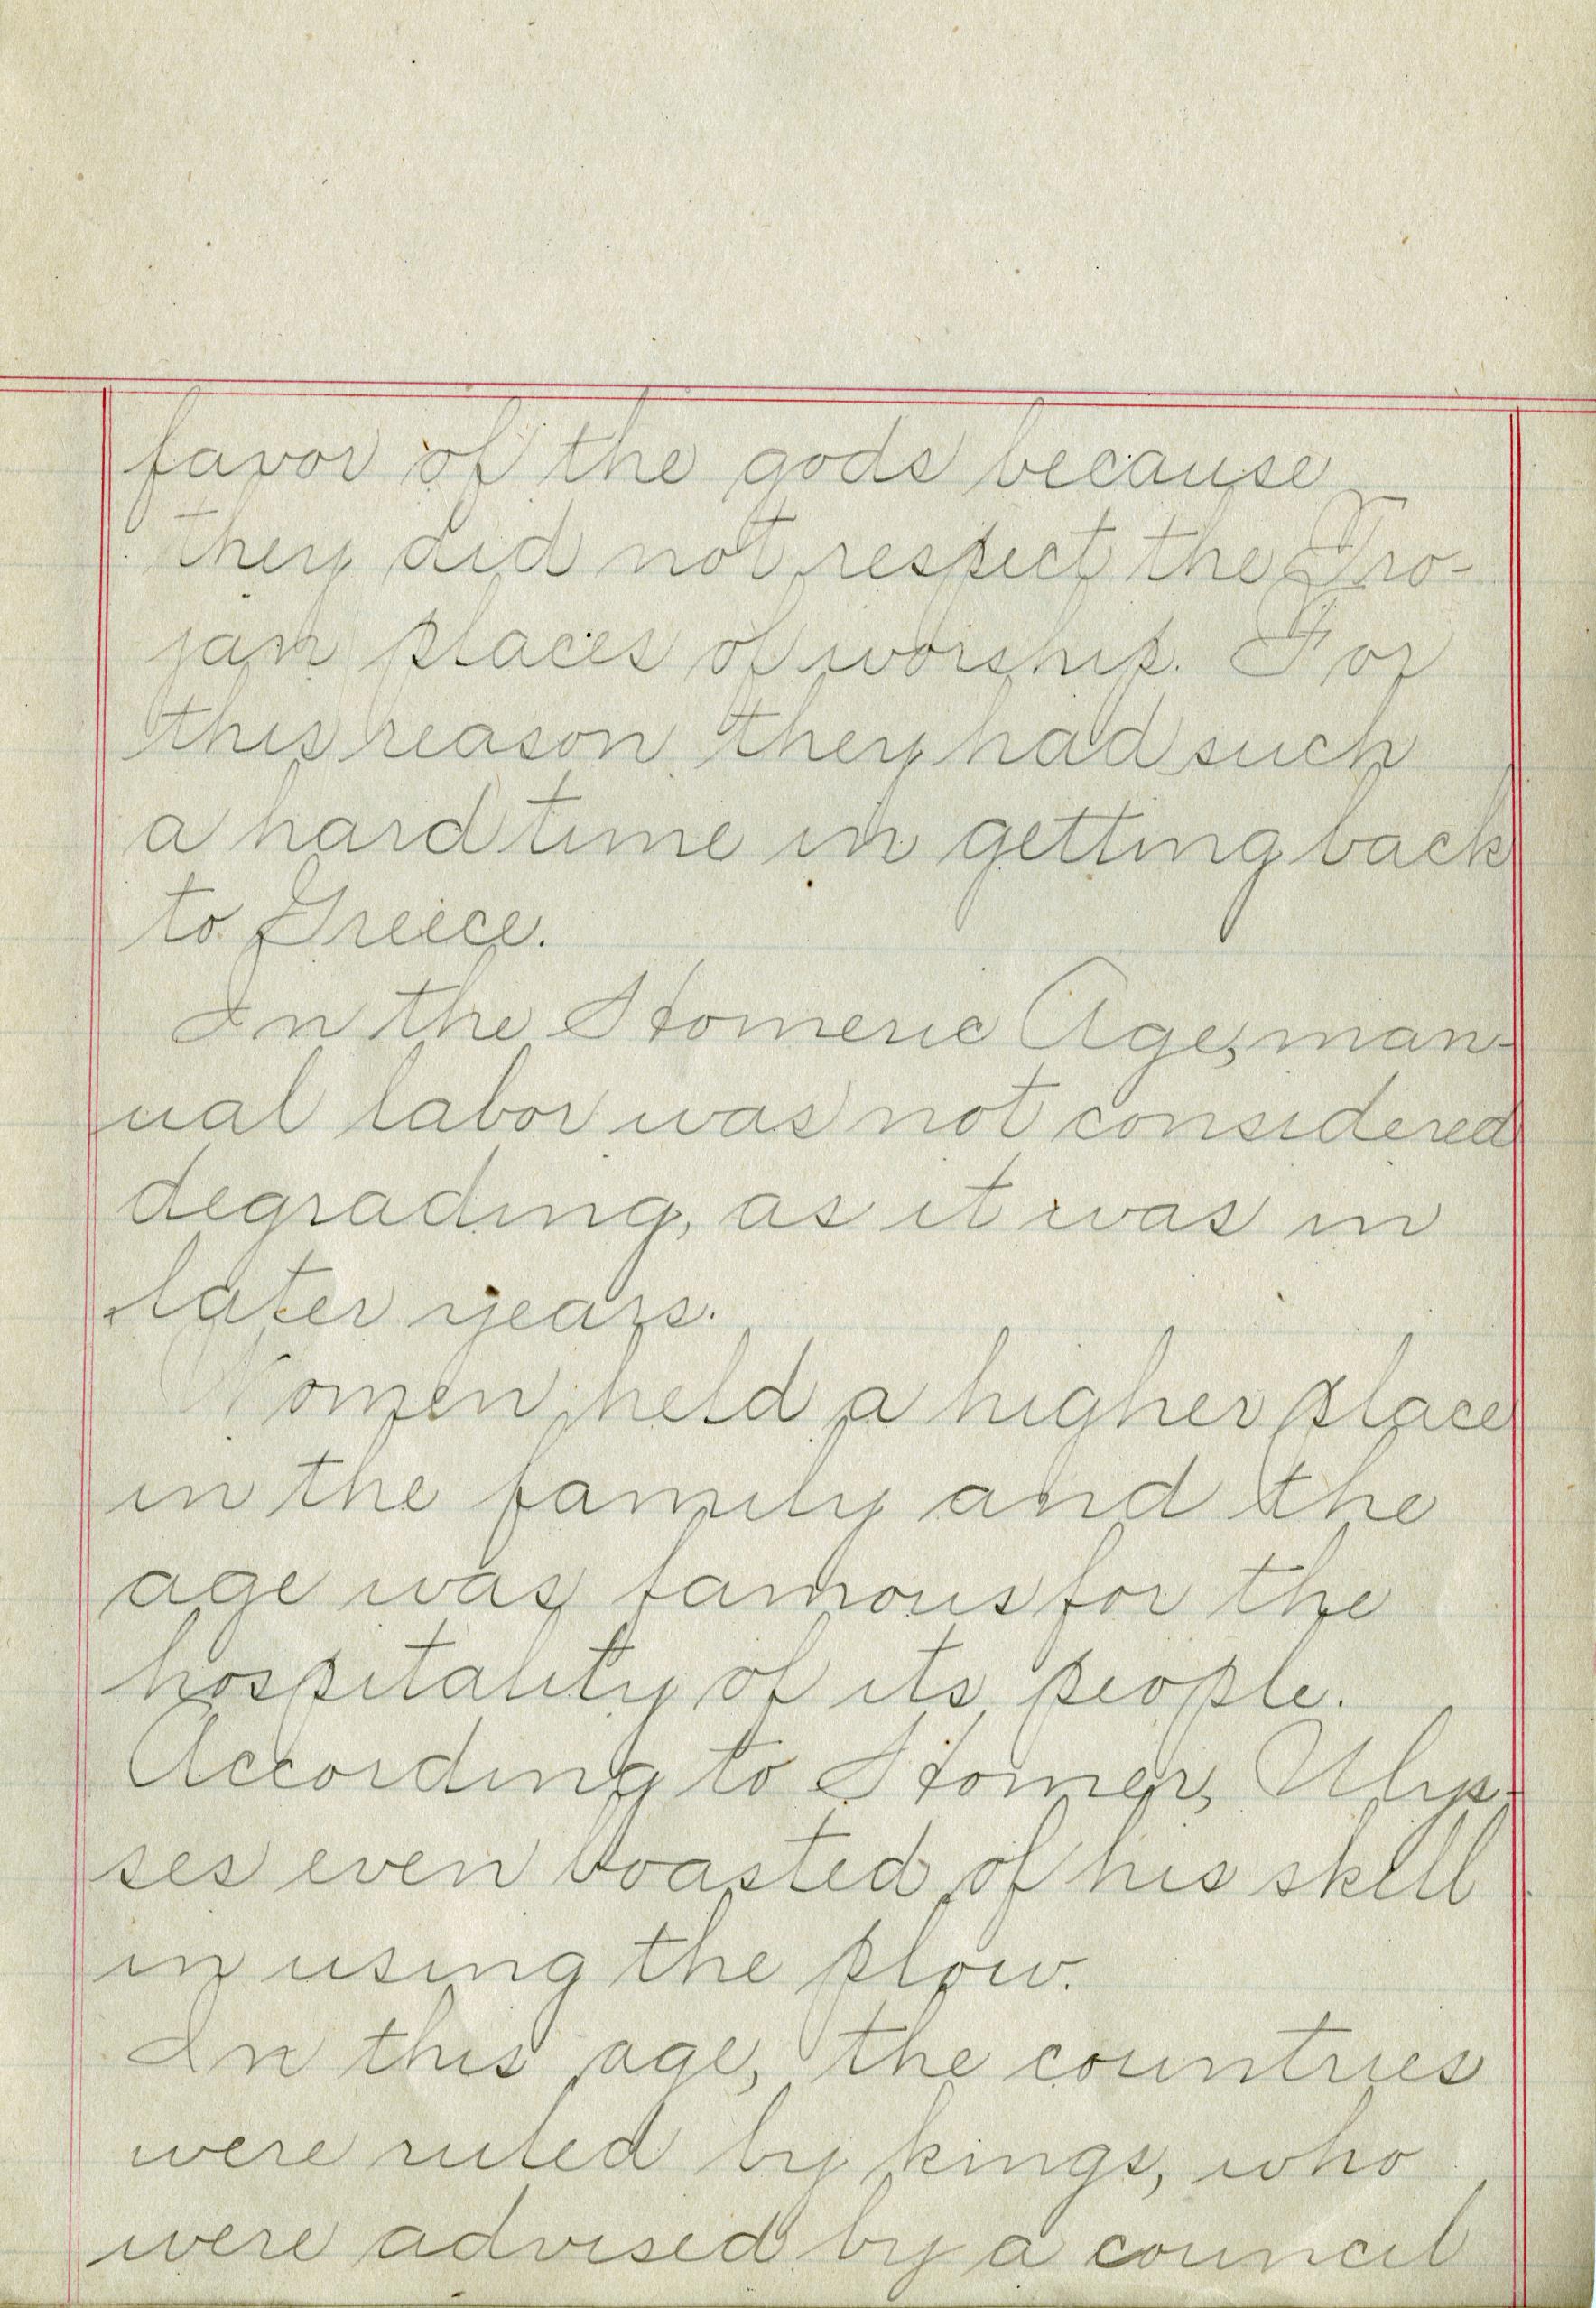 favor of the gods because
they did not respect the Tro-
jan places of worship. For
this reason they had such
a hard time in getting back
to Greece.
In the Homeric Age, man-
ual labor was not considered
degrading, as it was in
later years.
Women held a higher place
in the family and the
age was famous for the
hospitality of its people.
According to Homer, Ulys-
ses even boasted of his skill
in using the plow.
In this age, the countries
were ruled by kings, who
were advised by a council